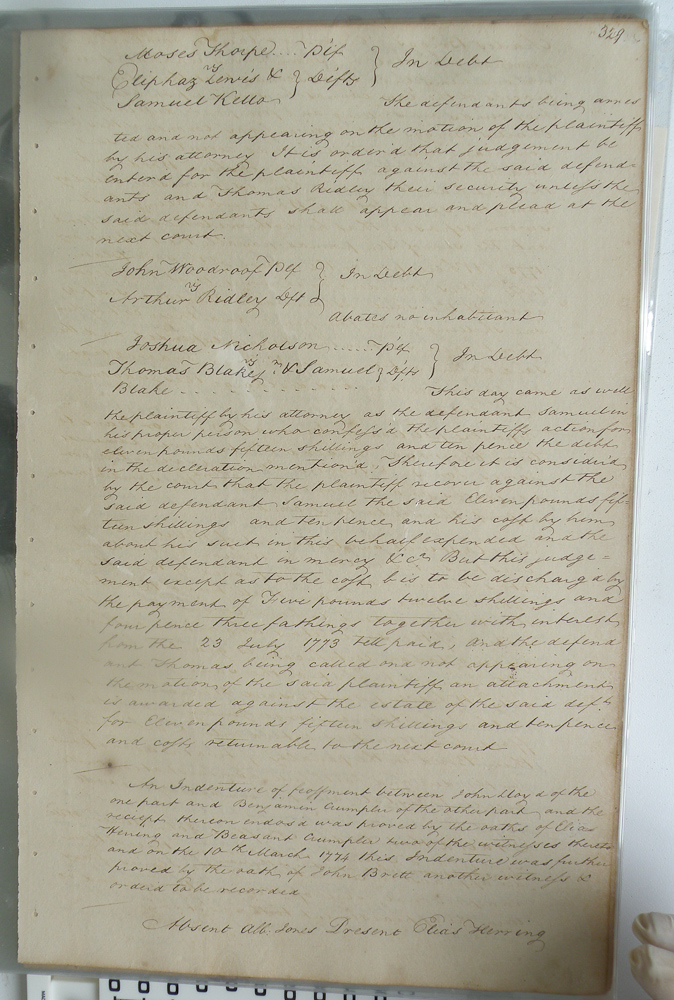 329
Moses Thorpe .... Plf } In Debt
vs
Eliphaz Lewis & } Defts
Samuel Kello
The defendants being arres
ted and not appearing on the motion of the plaintiff
by his attorney It is order'd that judgement be
enterd for the plaintiff against the said defend=
ants and Thomas Ridley their security unless the
said defendants shall appear and plead at the
next court.
John Woodroof Plf } In Debt
vs
Arthur Ridley Dft
Abates no inhabitant
Joshua Nicholson ...... Plf } In Debt
vs
Thomas Blake & Samuel } Defts
Blake - - - - - - - - -
This day came as well
the plaintiff by his attorney as the defendant Samuel in
his proper person who confess'd the plaintiffs action for
eleven pounds fifteen shillings and ten pence the debt
in the decleration mention'd, Therefore it is consider'd
by the court that the plaintiff recover against the
said defendant Samuel the said Eleven pounds fif-
teen shillings and ten pence and his cost by him
about his suit in this behalf expended and the
said defendant in mercy &c.a But this judge=
ment except as to the cost is to be discharg'd by
the payment of Five pounds twelve shillings and
four pence three fathings together with interest
from the 23 July 1773 till paid, and the defend
ant Thomas being called and not appearing on
the motion of the said plaintiff an attachment
is awarded against the estate of the said deft.
for Eleven pounds fifteen shillings and ten pence
and costs returnable to the next court
An Indenture of feoffment between John Lloyd of the
one part and Benjamin Crumpler of the other part and the
reciept thereon endos'd was proved by the oaths of Elias
Herring and Beasant Crumpler two of the witnesses thereto
and on the 10th March 1774 this Indenture was further
proved by the oath of John Brett another witness &
orderd to be recorded
Absent Alb. Jones Present Elias Herring